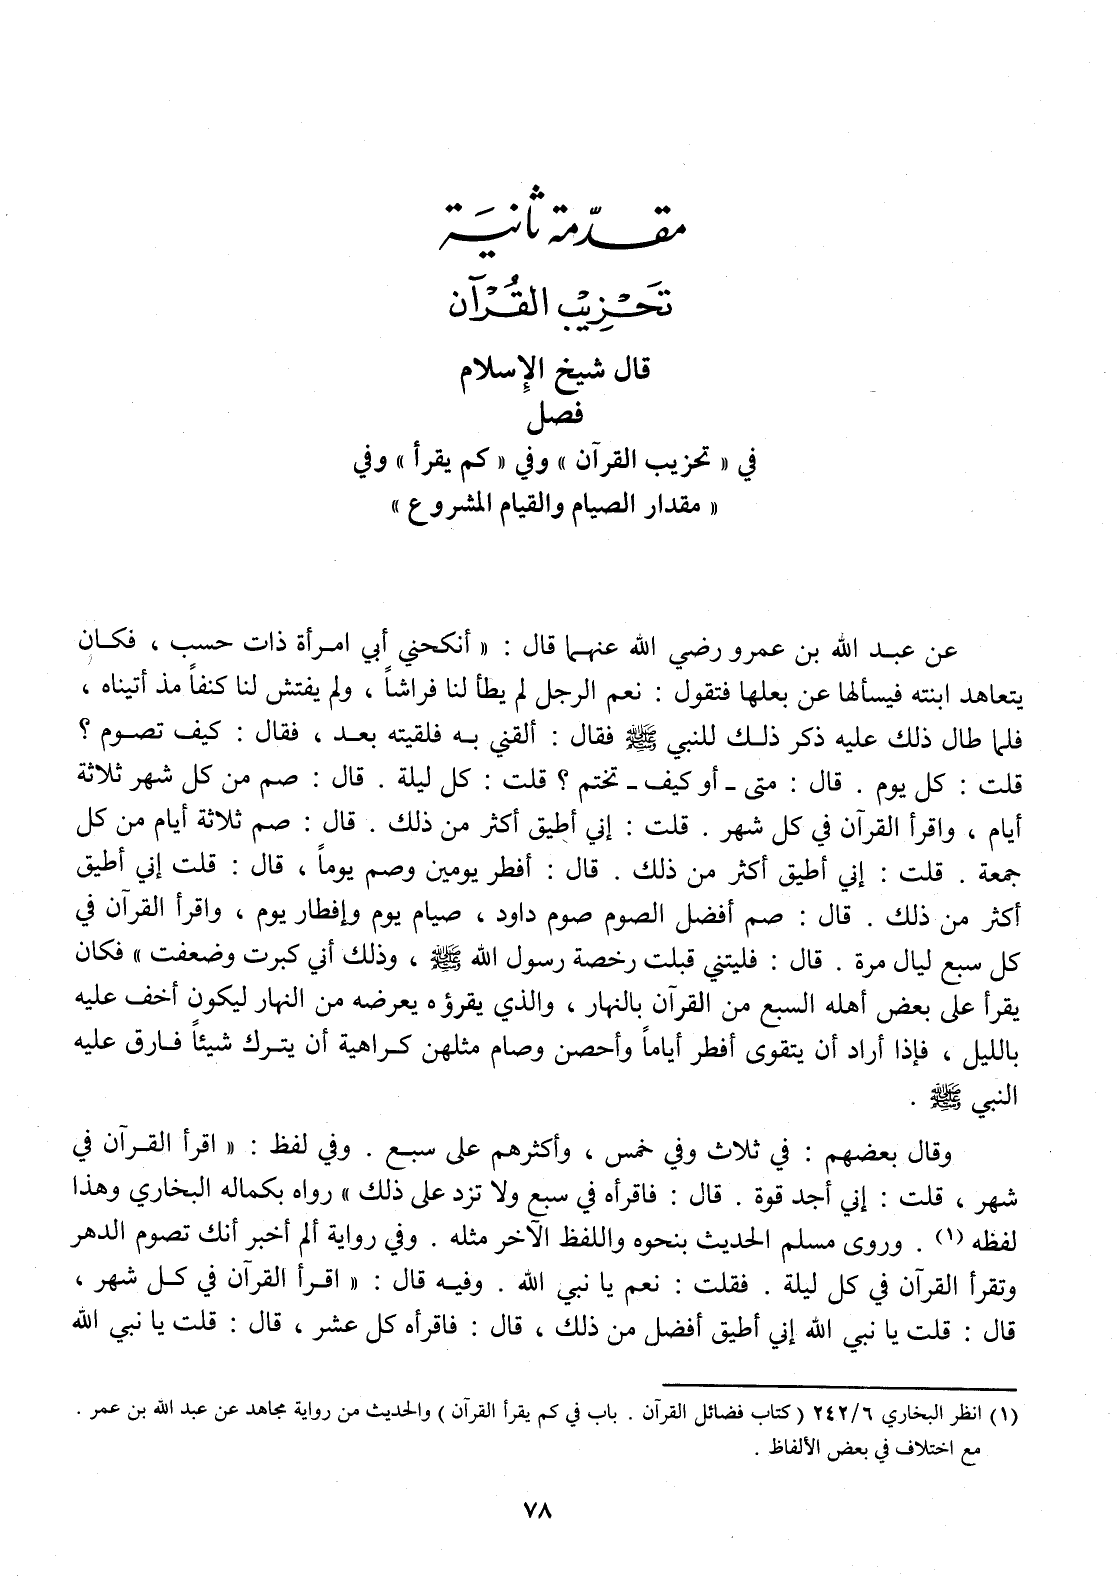 مقدّمة ثانية
تَحْزِيْب القُرْآن
قال شيخ الإسلام
فصل
في « تحزيب القرآن » وفي « كم يقرأ » وفي
« مقدار الصيام والقيام المشروع »
عن عبد الله بن عمرو رضي الله عنهما قال : « أنكحني أبي امرأة ذات حسب ، فكان
يتعاهد ابنته فيسألها عن بعلها فتقول : نعم الرجل لم يطأ لنا فراشاً ، ولم يفتش لنا كنفاً مذ أتيناه ،
فلما طال ذلك عليه ذكر ذلك للنبي ﷺ فقال : ألقني به فلقيته بعد ، فقال : كيف تصوم ؟
قلت : كل يوم . قال : متى ـ أو كيف ـ تختم ؟ قلت : كل ليلة . قال : صم من كل شهر ثلاثة
أيام ، واقرأ القرآن في كل شهر . قلت : إني أطيق أكثر من ذلك . قال : صم ثلاثة أيام من كل
جمعة . قلت : إني أطيق أكثر من ذلك . قال : أفطر يومين وصم يوماً ، قال : قلت إني أطيق
أكثر من ذلك . قال : صم أفضل الصوم صوم داود ، صيام يوم وإفطار يوم ، واقرأ القرآن في
كل سبع ليال مرة . قال : فليتني قبلت رخصة رسول الله ﷺ ، وذلك أني كبرت وضعفت » فكان
يقرأ على بعض أهله السبع من القرآن بالنهار ، والذي يقرؤه يعرضه من النهار ليكون أخف عليه
بالليل ، فإذا أراد أن يتقوى أفطر أياماً وأحصن وصام مثلهن كراهية أن يترك شيئاً فارق عليه
النبي ﷺ .
وقال بعضهم : في ثلاث وفي خمس ، وأكثرهم على سبع . وفي لفظ : « اقرأ القرآن في
شهر ، قلت : إني أجد قوة . قال : فاقرأه في سبع ولا تزد على ذلك » رواه بكماله البخاري وهذا
لفظه (١) . وروى مسلم الحديث بنحوه واللفظ الآخر مثله . وفي رواية ألم أخبر أنك تصوم الدهر
وتقرأ القرآن في كل ليلة . فقلت : نعم يا نبي الله . وفيه قال : « اقرأ القرآن في كل شهر ،
قال : قلت يا نبي الله إني أطيق أفضل من ذلك ، قال : فاقرأه كل عشر ، قال : قلت يا نبي الله
(١) انظر البخاري ٢٤٢/٦ ( كتاب فضائل القرآن . باب في كم يقرأ القرآن ) والحديث من رواية مجاهد عن عبد الله بن عمر .
مع اختلاف في بعض الألفاظ .
٧٨